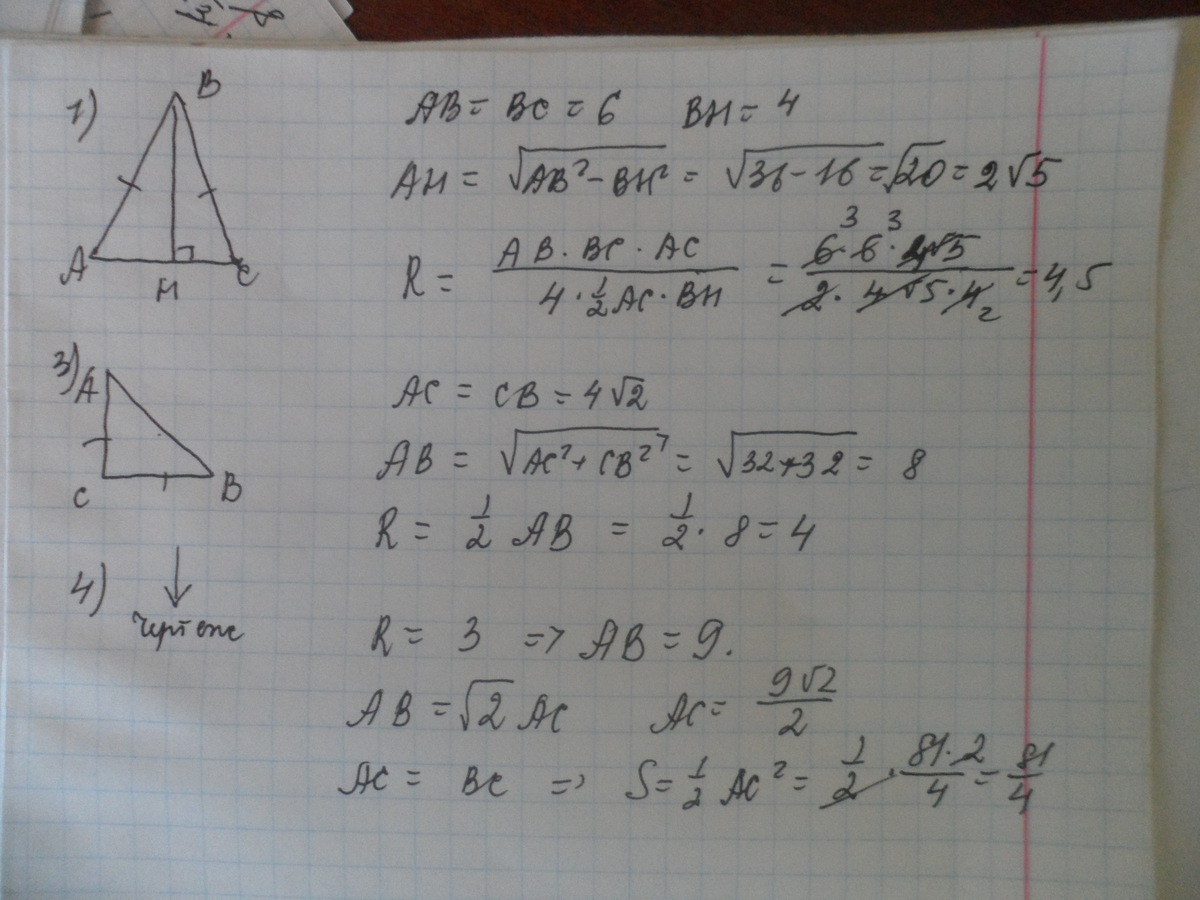 1)
B
A
H
C
AB = BC = 6 BH = 4
AH = √(AB² - BH²) = √(36 - 16) = √20 = 2√5
R = (AB · BC · AC)/(4 · 1/2 AC · BH) = (6 · 6 · 4√5)/(2 · 4√5 · 4) = 4,5
3 3
2
3)
A
C
B
AC = CB = 4√2
AB = √(AC² + CB²) = √(32 + 32) = 8
R = 1/2 AB = 1/2 · 8 = 4
4)
↓
Чертеж
R = 3 => AB = 9.
AB = √2 AC AC = 9√2/2
AC = BC => S = 1/2 AC² = 1/2 · 81·2/4 = 81/4